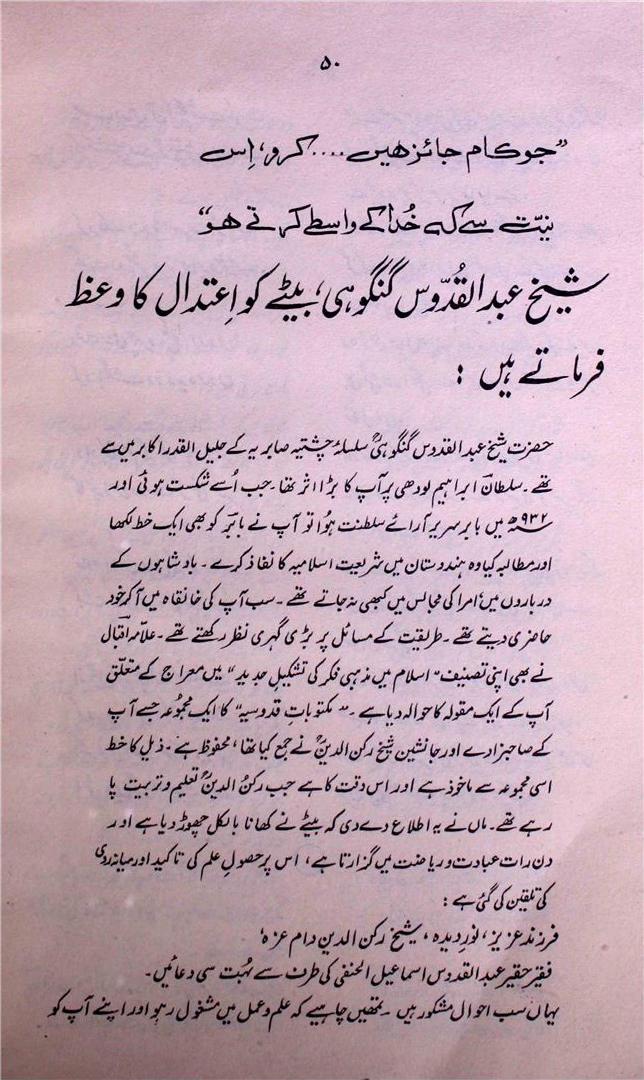 ۵۰
”جو کام جائز ھیں .... کرو، اِس
نیّت سے کہ خُدا کے واسطے کرتے ھو“
شیخ عبدالقُدّوس گنگوہی، بیٹے کو اِعتدال کا وعظ
فرماتے ہیں :
حضرت شیخ عبدالقدوس گنگوہیؒ سلسلۂ چشتیہ صابریہ کے جلیل القدر اکابر میں سے
تھے۔ سلطان ابراہیم لودھی پر آپ کا بڑا اثر تھا۔ جب اُسے شکست ہوئی اور
۹۳۲ھ میں بابر سریر آرائے سلطنت ہوُا تو آپ نے بابر کو بھی ایک خط لکھا
اور مطالبہ کیا وہ ہندوستان میں شریعت اسلامیہ کا نفاذ کرے۔ بادشاہوں کے
درباروں میں، امرا کی مجالس میں کبھی نہ جاتے تھے۔ سب آپ کی خانقاہ میں آکر خود
حاضری دیتے تھے۔ طریقیت کے مسائل پر بڑی گہری نظر رکھتے تھے۔ علاّمہ اقبال
نے بھی اپنی تصنیف ”اسلام میں مذہبی فکر کی تشکیل جدید“ میں معراج کے متعلّق
آپ کے ایک مقولہ کا حوالہ دیا ہے۔ ”مکتوبات قدوسیہ“ کا ایک مجموُعہ جسے آپ
کے صاحبزادے اور جانشین شیخ رکن الدینؒ نے جمع کیا تھا، محفوظ ہے۔ ذیل کا خط
اسی مجموعہ سے ماخوذ ہے اور اس وقت کا ہے جب رکنُ الدینؒ تعلیم و تربیت پا
رہے تھے۔ ماں نے یہ اطلاع دے دی کہ بیٹے نے کھانا بالکل چھوڑ دیا ہے اور
دن رات عبادت و ریاضت میں گزارتا ہے، اس پر حصولِ علم کی تاکید اور میانہ روی
کی تلقین کی گئی ہے :
فرزند عزیز، نورِ دیدہ، شیخ رکن الدین دام عزہ‘
فقیر حقیر عبدالقدوس اسماعیل الحنفی کی طرف سے بہُت سی دعائیں۔
یہاں سب احوال مشکور ہیں۔ تمھیں چاہیے کہ علم و عمل میں مشغول رہو اور اپنے آپ کو